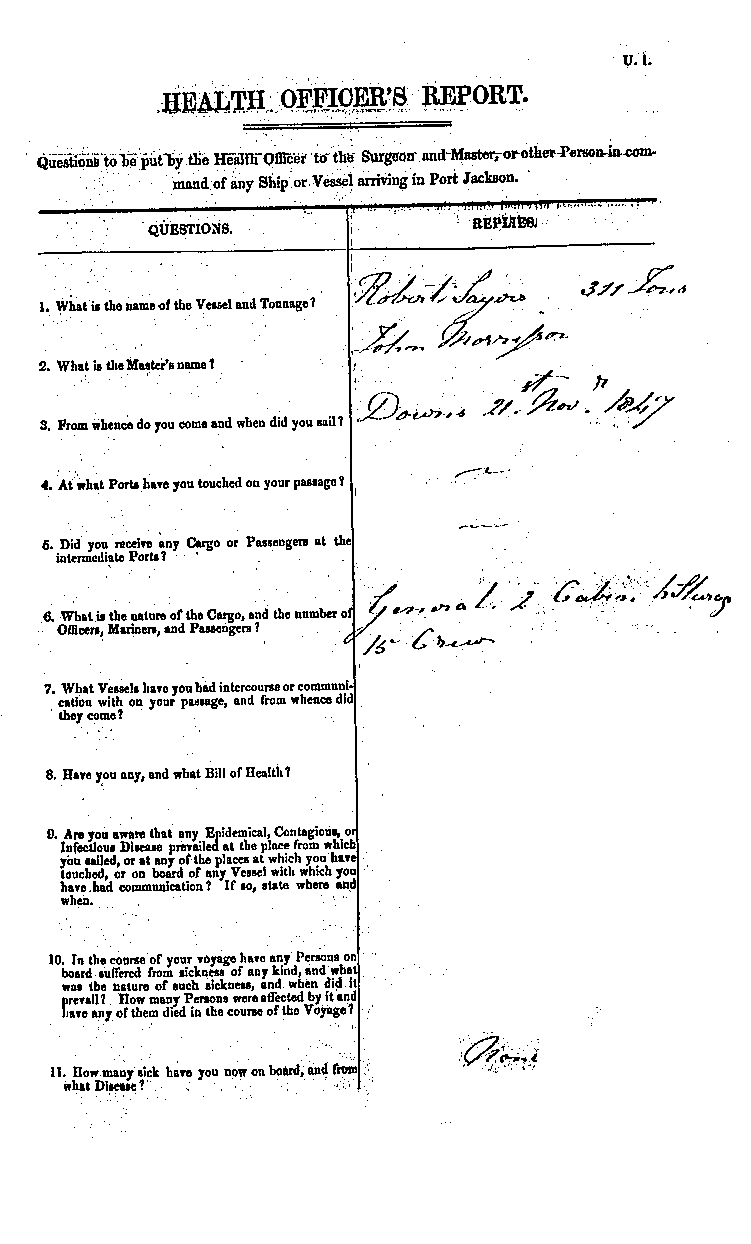 U. 1.
HEALTH OFFICER'S REPORT.
Questions to be put by the Health Officer to the Surgeon and Master, or other Person in com-
mand of any Ship or Vessel arriving in Port Jackson.
QUESTIONS. REPLIES.
1. What is the name of the Vessel and Tonnage? Robert Sayers 311 Tons
2. What is the Master's name? John Morrisson
3. From whence do you come and when did you sail? Downs 21st Novr. 1847
4. At what Ports have you touched on your passage? —
5. Did you receive any Cargo or Passengers at the —
intermediate Ports?
6. What is the nature of the Cargo, and the number of General. 2 Cabin
Officers, Mariners, and Passengers? 15 Crew
7. What Vessels have you had intercourse or communi-
cation with on your passage, and from whence did
they come?
8. Have you any, and what Bill of Health?
9. Are you aware that any Epidemical, Contagious, or
Infectious Disease prevailed at the place from which
you sailed, or at any of the places at which you have
touched, or on board of any Vessel with which you
have had communication? If so, state where and
when.
10. In the course of your voyage have any Persons on
board suffered from sickness of any kind, and what
was the nature of such sickness, and when did it
prevail? How many Persons were affected by it and
have any of them died in the course of the Voyage?
11. How many sick have you now on board, and from None
what Disease?